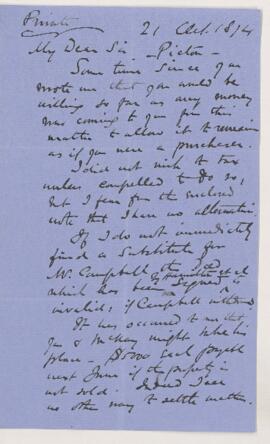 Private
21 Oct. 1874
My Dear Sir Picton
Some time since you
wrote me that you would be
willing so far as any money
was coming to you from this
matter to allow it to remain
as if you were a purchaser.
I did not wish to tax
unless compelled to do so,
but I fear from the enclosed
note that I have no alternative.
If I do not immediately
find a Substitute for
Mr. Campbell the Deed
which has been Signed is
invalid; if Campbell withdraws
It has occurred to me that
you & McKay might take his
place — $5000 each payable
next June if the property is
not sold. Indeed I see
no other way to settle matters.